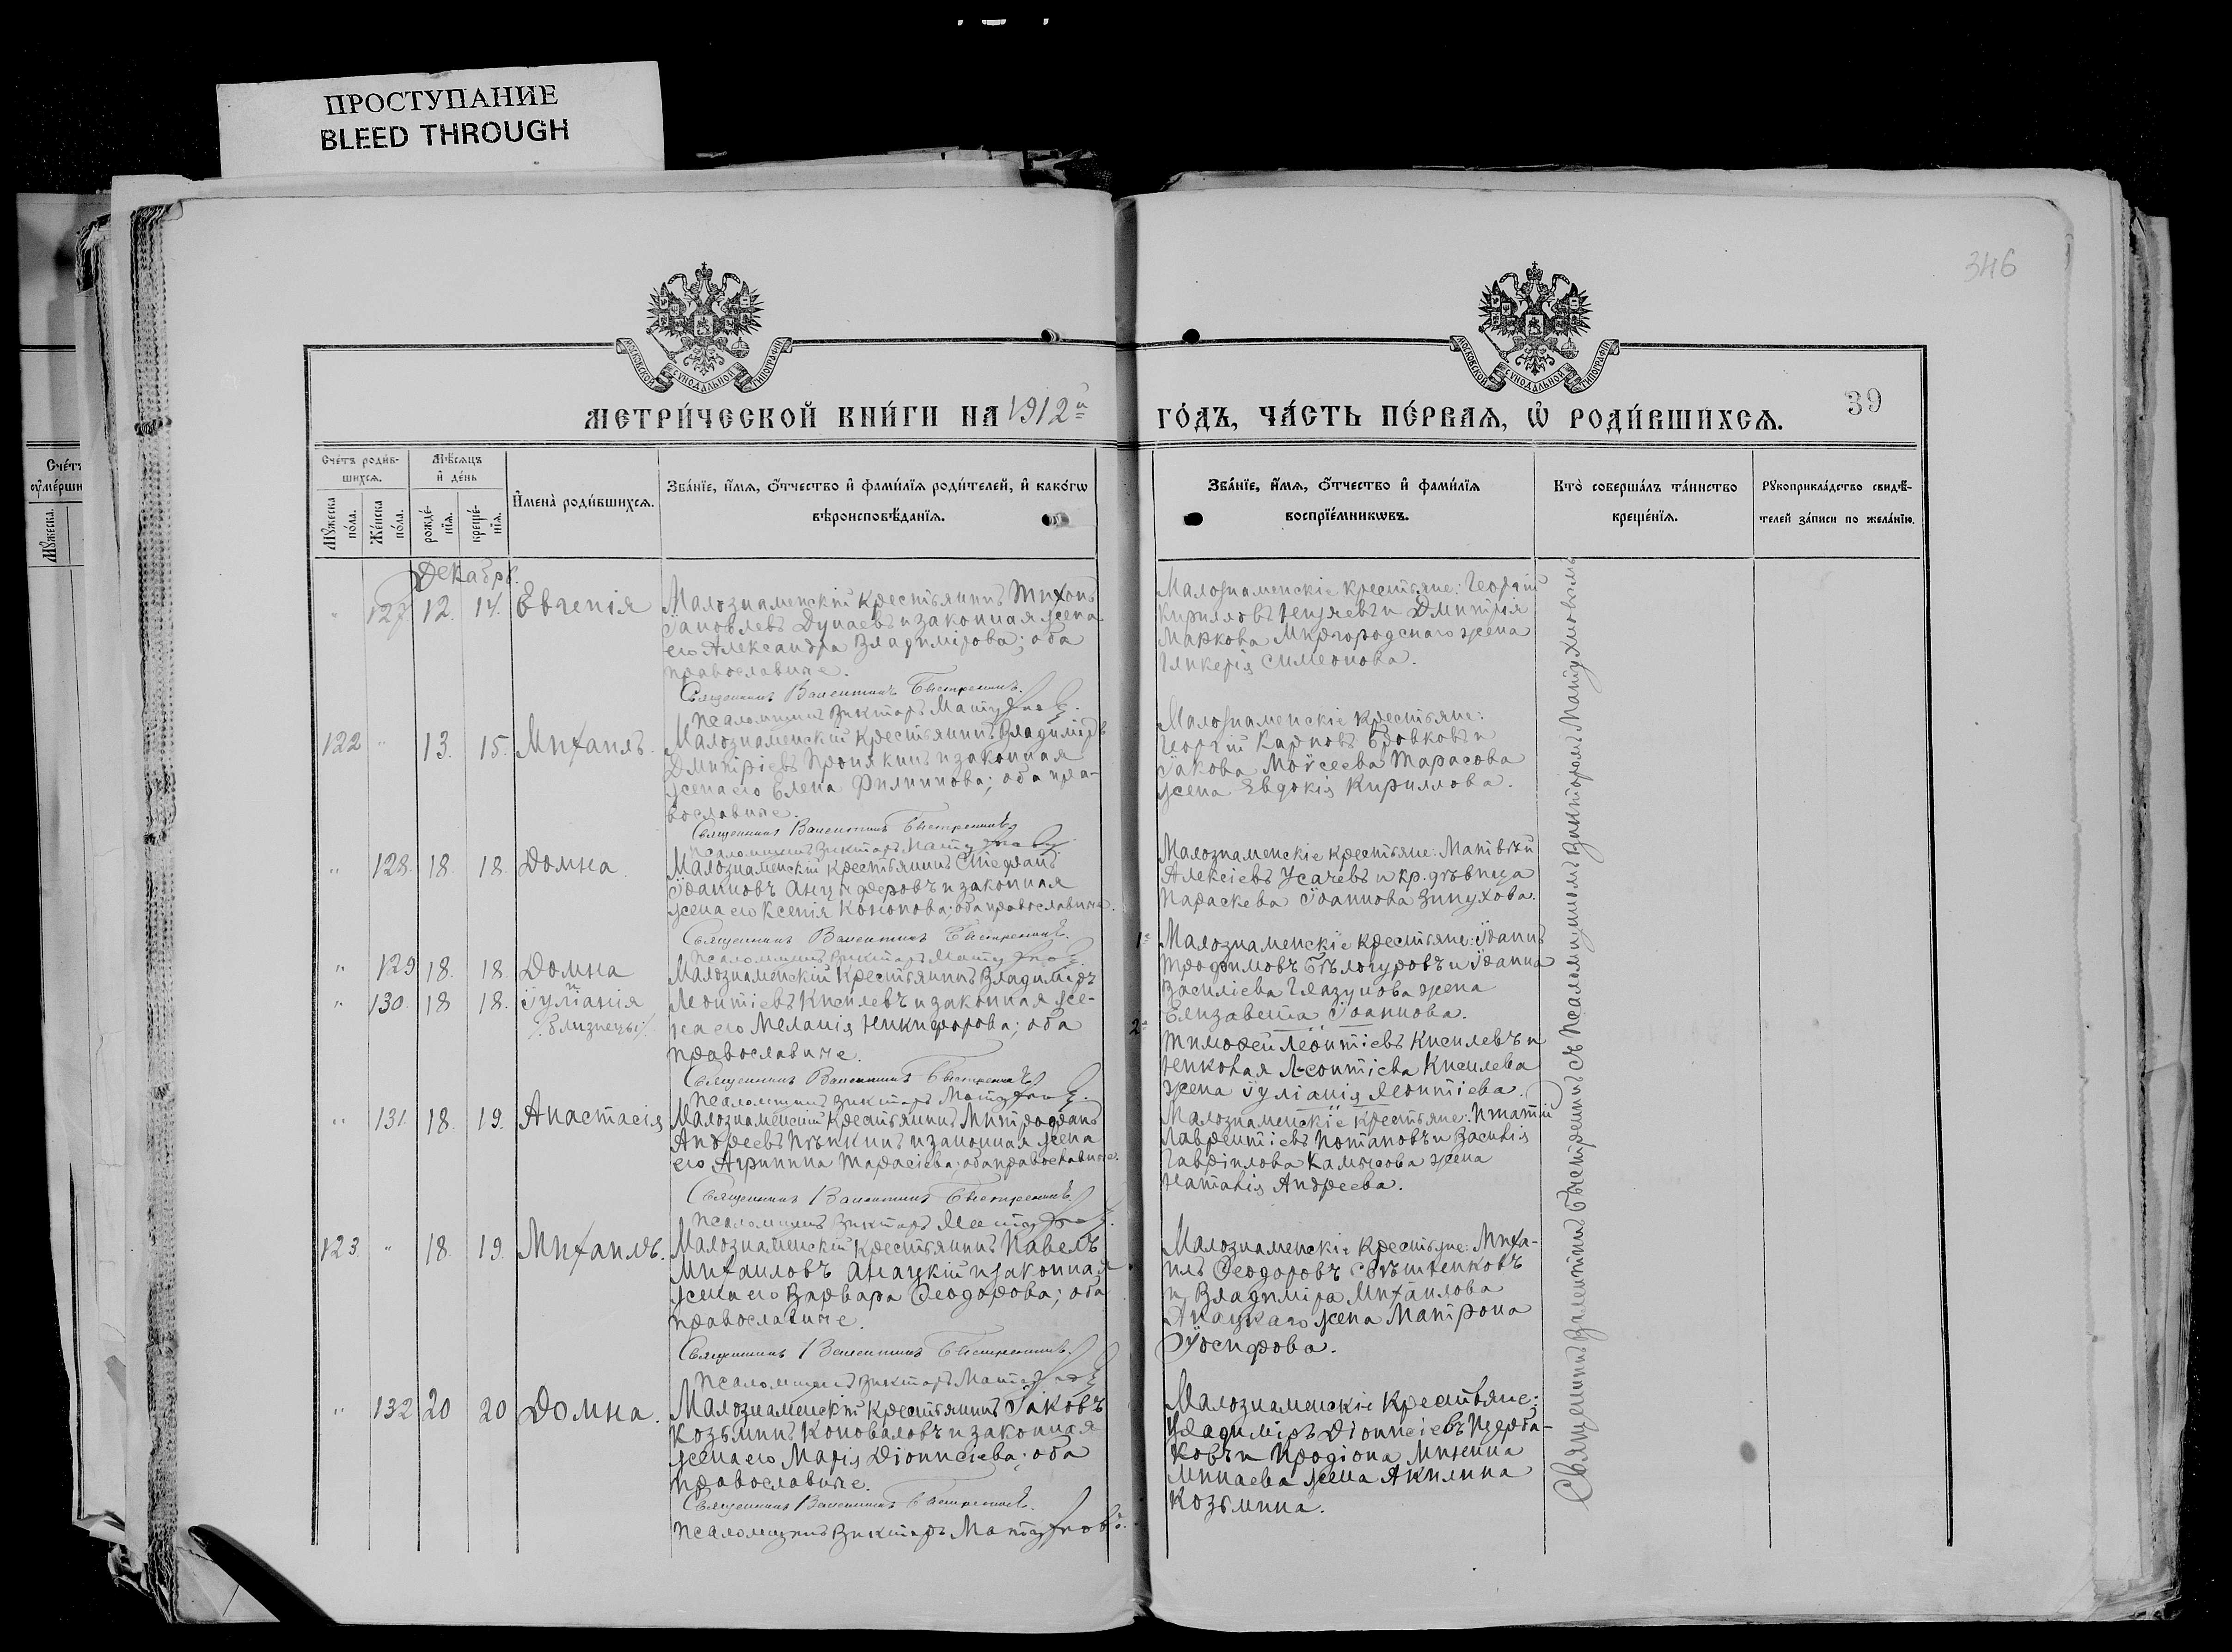 ПРОСТУПАНИЕ
BLEED THROUGH
346
МОСКОВСКОЙ СѴНОДАЛЬНОЙ ТИПОГРАФІИ
МОСКОВСКОЙ СѴНОДАЛЬНОЙ ТИПОГРАФІИ
МЕТРИ́ЧЕСКОЙ КНИ́ГИ НА 1912й ГО́ДЪ, ЧА́СТЬ ПЕ́РВАЯ, Ѽ РОДИ́ВШИХСЯ.
39
Сче́тъ роди́в-
шихся.
Мꙋ́жеска по́ла.
Же́нска по́ла.
Мѣ́сяцъ
и҆ де́нь
рожде́-
нїя.
креще́-
нїя.
И҆мена̀ роди́вшихся.
Зва́нїе, и҆́мя, ѻ҆́тчество и҆ фами́лїя роди́телей, и҆ како́гѡ
вѣроисповѣ́данїя.
Зва́нїе, и҆́мя, ѻ҆́тчество и҆ фами́лїя
воспрїе́мникѡвъ.
Кто̀ соверша́лъ та́инство
креще́нїя.
Рꙋкоприкла́дство свидѣ́-
телей за́писи по жела́нїю.
Сче́тъ
ᲂу҆ме́рши
Мꙋ́жеска.
Декабрь.
" 127 12. 14. Евгенія
Малознаменскій крестьянинъ Тихонъ
Іаковлевъ Дунаевъ и законная жена
его Александра Владимірова; оба
православные.
Священникъ Валентинъ Быстренинъ.
Псаломщикъ Викторъ Матухновъ.
Малознаменскіе крестьяне: Георгій
Кирилловъ и Димитрія
Маркова Миргородскаго жена
Гликерія Симеонова.
122 " 13. 15. Михаилъ.
Малознаменскій крестьянинъ Владиміръ
Димитріевъ Пронякинъ и законная
жена его Елена Филиппова; оба пра-
вославные.
Священникъ Валентинъ Быстренинъ
Псаломщикъ Викторъ Матухновъ
Малознаменскіе крестьяне:
Георгій Карповъ Бровковъ и
Іакова Моѵсеева Тарасова
жена Евдокія Кириллова.
" 128. 18. 18. Домна.
Малознаменскій крестьянинъ Стефанъ
Іоанновъ Анцыферовъ и законная
жена его Ксенія Кононова; оба православные.
Священникъ Валентинъ Быстренинъ.
Псаломщикъ Викторъ Матухновъ.
Малознаменскіе крестьяне: Матвѣй
Алексіевъ Усачевъ и кр. дѣвица
Параскева Іоаннова Зинухова.
" 129 18. 18. Домна
" 130. 18 18. Іуліанія
/близнецы/.
Малознаменскій крестьянинъ Владиміръ
Леонтіевъ Киселевъ и законная же-
на его Меланія Никифорова; оба
православные.
Священникъ Валентинъ Быстренинъ
Псаломщикъ Викторъ Матухновъ.
1е Малознаменскіе крестьяне: Іоаннъ
Трофимовъ Бѣлогуровъ и Іоанна
Василіева Глазунова жена
Елизавета Іоаннова.
2е Тимофей Леонтіевъ Киселевъ и
Николая Леонтіева Киселева
жена Іуліанія Леонтіева.
" 131. 18. 19. Анастасія
Малознаменскій крестьянинъ Митрофанъ
Андреевъ Пѣнкинъ и законная жена
его Агриппина Тарасіева; оба православные.
Священникъ Валентинъ Быстренинъ.
Псаломщикъ Викторъ Матухновъ.
Малознаменскіе крестьяне: Игнатій
Лаврентіевъ Потаповъ и Василія
Гавріилова жена
Наталія Андреева.
123 " 18. 19. Михаилъ.
Малознаменскій крестьянинъ Павелъ
Михаиловъ Анацкій и законная
жена его Варвара Ѳеодорова; оба
православные.
Священникъ Валентинъ Быстренинъ.
Псаломщикъ Викторъ Матухновъ
Малознаменскіе крестьяне: Миха-
илъ Ѳеодоровъ
и Владиміра Михаилова
Анацкаго жена Матрона
Іосифова.
" 132 20 20 Домна.
Малознаменскій крестьянинъ Іаковъ
Козьминъ Коноваловъ и законная
жена его Марія Діонисіева; оба
православные.
Священникъ Валентинъ Быстренинъ.
Псаломщикъ Викторъ Матухновъ.
Малознаменскіе крестьяне:
Владиміръ Діонисіевъ Щерба-
ковъ и Иродіона Минина
Минаева жена Акилина
Козьмина.
Священникъ Валентинъ Быстренинъ съ Псаломщикомъ Викторомъ Матухновымъ